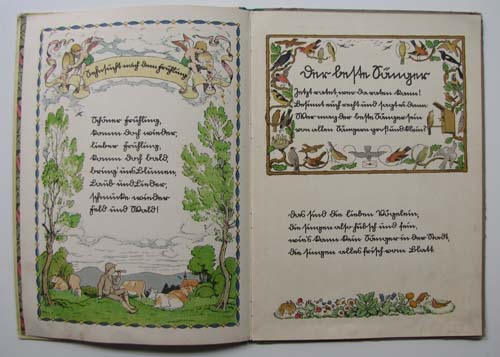 Sehnsucht nach dem Frühling
Schöner Frühling,
komm doch wieder,
lieber Frühling,
komm doch bald,
bring' uns Blumen,
Laub und Lieder,
schmücke wieder
Feld und Wald!
Der beste Sänger
Jetzt ratet, wer da raten kann!
Besinnt euch recht und sagt es dann:
Wer mag der beste Sänger sein
von allen Sängern groß und klein?
Das sind die lieben Vögelein,
die singen also hübsch und fein,
wie's kann kein Sänger in der Stadt,
die singen alles frisch vom Blatt.